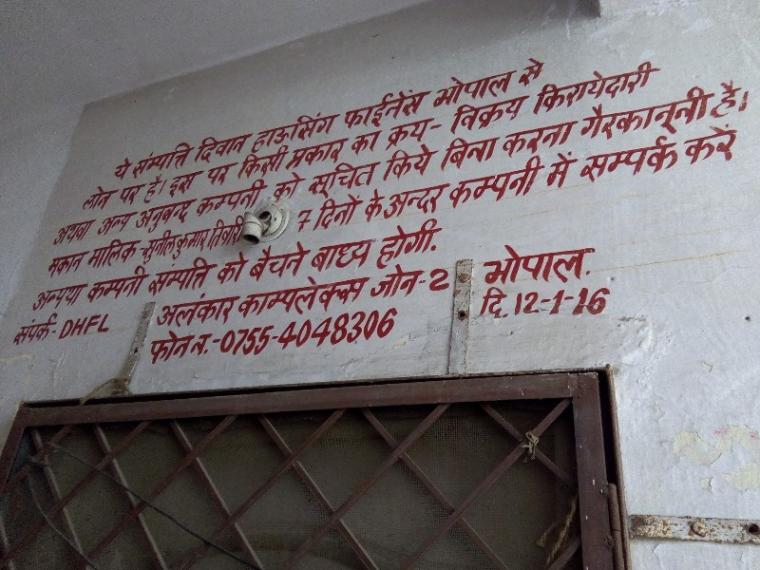 ये संम्पाति दिवान हाऊसिंग फाईनेंस भोपाल से
लोन पर है। इस पर किसी प्रकार का क्रय- विक्रय किरायेदारी
अथवा अन्य अनुबन्द कम्पनी को सूचित किये बिना करना गैरकानूनी है।
मकान मालिक सुनील कुमार तिवारी 7 दिनो के अन्दर कम्पनी में सम्पर्क करें
अन्यथा कम्पनी संम्पति को बैचने बाध्य होगी.
संपर्क- DHFL अलंकार काम्पलेक्स जोन-2 भोपाल.
फोन न.-0755-4048306 दि. 12-1-16